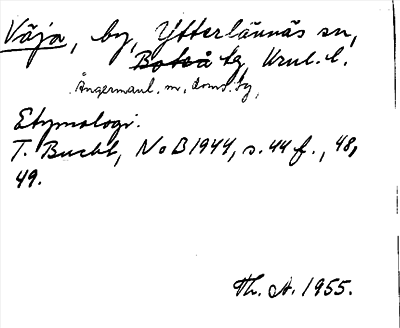 Väja, by, Ytterlännäs sn,
Boteå tg, Vrnl. l.
Ångermanl. m. doms. tg,
Etymologi.
T. Bucht, NoB 1944, s. 44 f., 48,
49.
Th. A. 1955.